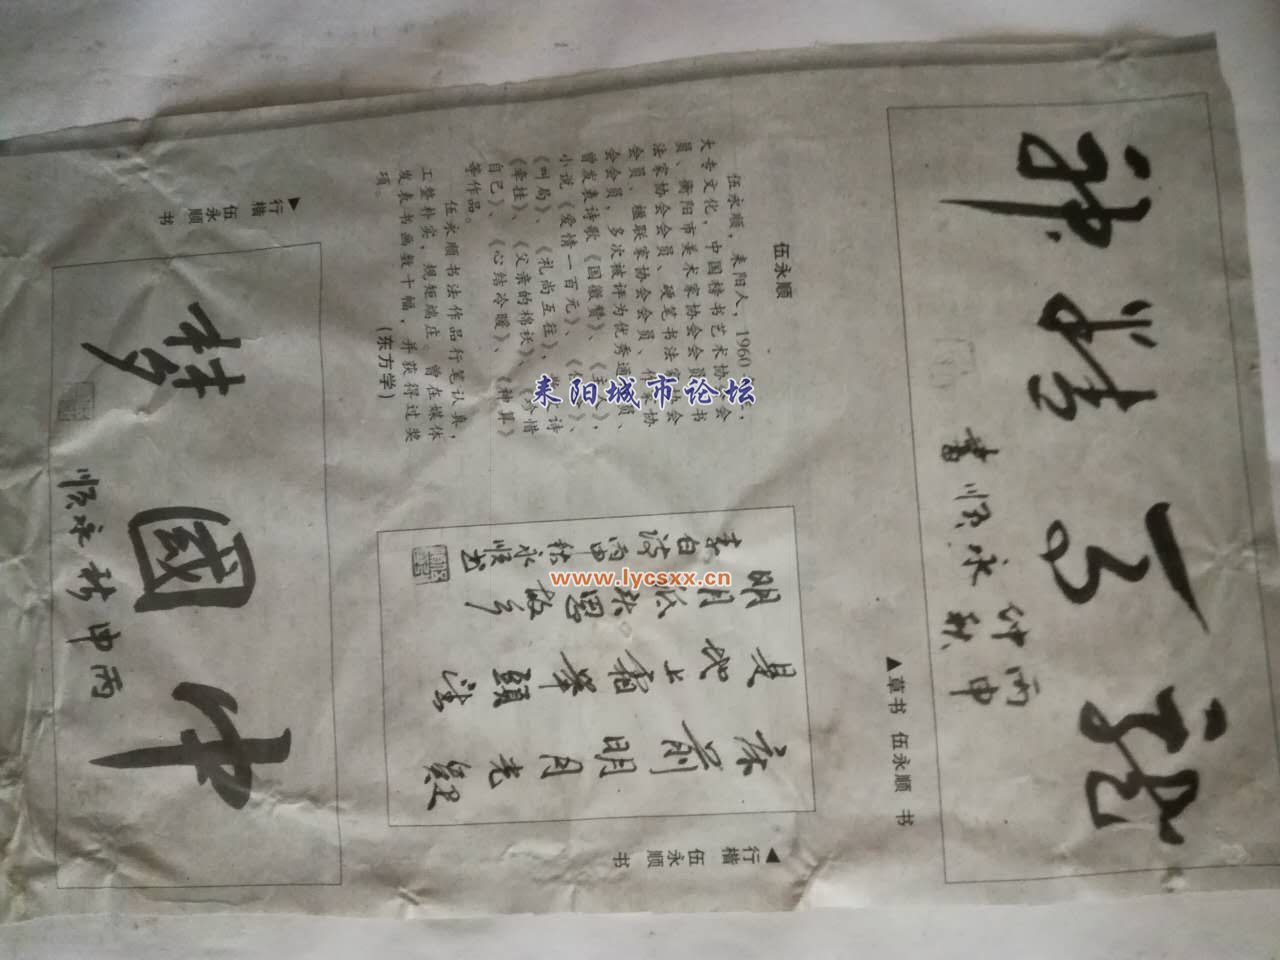 龍馬精神
丙申
仲秋
永顺書
▲草书 伍永顺 书
伍永顺
伍永顺，耒阳人，1960
大专文化，中国榜书艺术协 会
员、衡阳市美术家协会会员 书
法家协会会员、硬笔书法家协会
会员、楹联家协会会员、作 协
会会员，多次被评为优秀通 员、
曾发表诗歌《国徽赞》、《主 》，
小说《爱情一百元》、 》、
《叫局》、《礼尚互往》， 诗
《牵挂》、《父亲的棉袄》、 惜
自己》、《心结冷暖》、《神算》
等作品。
伍永顺书法作品行笔认真，
工整朴实，规矩端庄。曾在媒体
发表书画数十幅，并获得过奖
项。
(东方学)
床前明月光疑
是地上霜举頭望
明月低头思故乡
李白诗丙申秋永顺书
▲行楷 伍永顺 书
中國梦
丙申秋永顺
▲行楷 伍永顺 书
耒阳城市论坛
www.lycsxx.cn